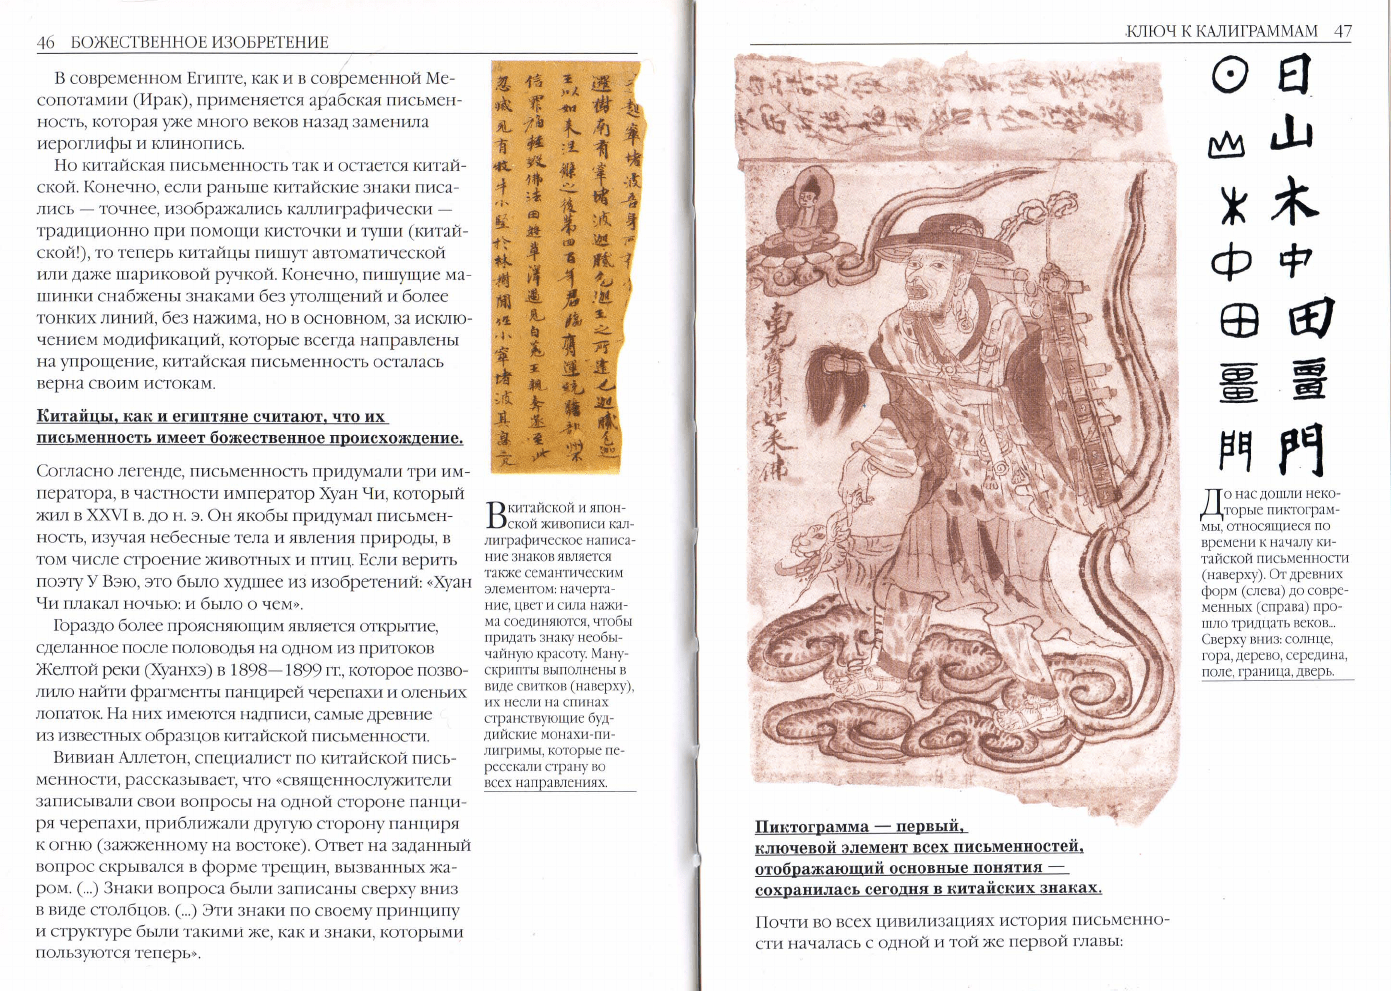 46 БОЖЕСТВЕННОЕ ИЗОБРЕТЕНИЕ
В современном Египте, как и в современной Ме-
сопотамии (Ирак), применяется арабская письмен-
ность, которая уже много веков назад заменила
иероглифы и клинопись.
Но китайская письменность так и остается китай-
ской. Конечно, если раньше китайские знаки писа-
лись — точнее, изображались каллиграфически —
традиционно при помощи кисточки и туши (китай-
ской!), то теперь китайцы пишут автоматической
или даже шариковой ручкой. Конечно, пишущие ма-
шинки снабжены знаками без утолщений и более
тонких линий, без нажима, но в основном, за исклю-
чением модификаций, которые всегда направлены
на упрощение, китайская письменность осталась
верна своим истокам.
Китайцы, как и египтяне считают, что их
письменность имеет божественное происхождение.
Согласно легенде, письменность придумали три им-
ператора, в частности император Хуан Чи, который
жил в XXVI в. до н. э. Он якобы придумал письмен-
ность, изучая небесные тела и явления природы, в
том числе строение животных и птиц. Если верить
поэту У Вэю, это было худшее из изобретений: «Хуан
Чи плакал ночью: и было о чем».
Гораздо более проясняющим является открытие,
сделанное после половодья на одном из притоков
Желтой реки (Хуанхэ) в 1898—1899 гг., которое позво-
лило найти фрагменты панцирей черепахи и оленьих
лопаток. На них имеются надписи, самые древние
из известных образцов китайской письменности.
Вивиан Аллетон, специалист по китайской пись-
менности, рассказывает, что «священнослужители
записывали свои вопросы на одной стороне панци-
ря черепахи, приближали другую сторону панциря
к огню (зажженному на востоке). Ответ на заданный
вопрос скрывался в форме трещин, вызванных жа-
ром. (...) Знаки вопроса были записаны сверху вниз
в виде столбцов. (...) Эти знаки по своему принципу
и структуре были такими же, как и знаки, которыми
пользуются теперь».
В китайской и япон-
ской живописи кал-
лиграфическое написа-
ние знаков является
также семантическим
элементом: начерта-
ние, цвет и сила нажи-
ма соединяются, чтобы
придать знаку необы-
чайную красоту. Ману-
скрипты выполнены в
виде свитков (наверху),
их несли на спинах
странствующие буд-
дийские монахи-пи-
лигримы, которые пе-
ресекали страну во
всех направлениях.
КЛЮЧ К КАЛИГРАММАМ 47
日
山
木
中
田
畺
門
До нас дошли неко-
торые пиктограм-
мы, относящиеся по
времени к началу ки-
тайской письменности
(наверху). От древних
форм (слева) до совре-
менных (справа) про-
шло тридцать веков...
Сверху вниз: солнце,
гора, дерево, середина,
поле, граница, дверь.
Пиктограмма — первый,
ключевой элемент всех письменностей,
отображающий основные понятия —
сохранилась сегодня в китайских знаках.
Почти во всех цивилизациях история письменно-
сти началась с одной и той же первой главы: